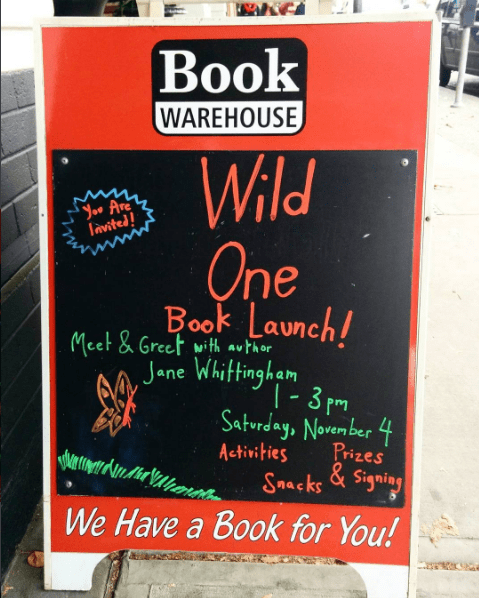 Book
WAREHOUSE
You Are
Invited!
Wild
One
Book Launch!
Meet & Greet with author
Jane Whittingham
1-3pm
Saturday, November 4
Activities Prizes
Snacks & Signing
We Have a Book for You!